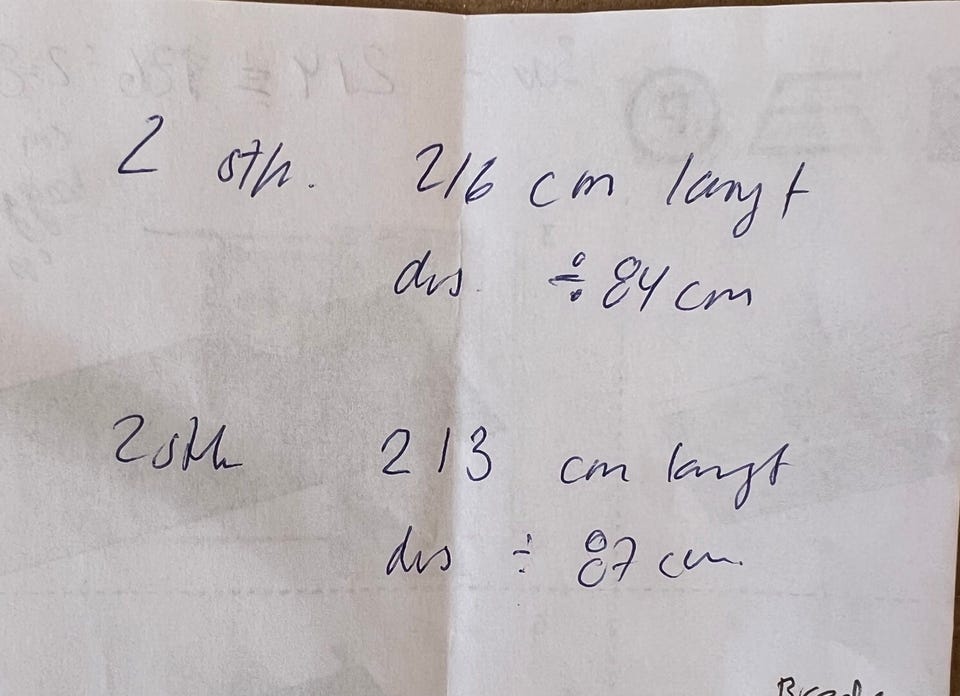 2 stk. 216 cm langt
dvs. ÷ 84 cm
2 stk 213 cm langt
dvs ÷ 87 cm.